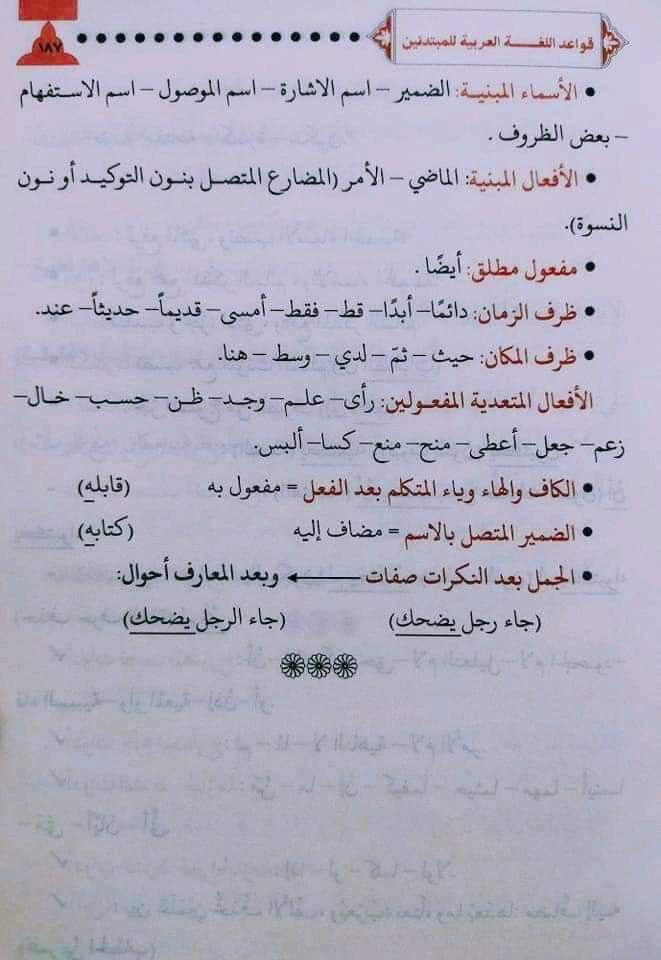 قواعد اللغـــة العربية للمبتدئين
١٨٧
• الأسماء المبنية: الضمير – اسم الاشارة – اسم الموصول – اسم الاستفهام
– بعض الظروف .
• الأفعال المبنية: الماضي – الأمر (المضارع المتصل بنون التوكيد أو نون
النسوة).
• مفعول مطلق: أيضًا .
• ظرف الزمان: دائمًا – أبدًا – قط – فقط – أمسى – قديماً – حديثاً – عند.
• ظرف المكان: حيث – ثمّ – لدي – وسط – هنا.
الأفعال المتعدية المفعولين: رأى – علـم – وجـد – ظـن – حسـب – خال –
زعم – جعل – أعظى – منح – منع – كسا – ألبس.
• الكاف والهاء وياء المتكلم بعد الفعل = مفعول به (قابله)
• الضمير المتصل بالاسم = مضاف إليه (كتابه)
• الجمل بعد النكرات صفات ← وبعد المعارف أحوال:
(جاء رجل يضحك) (جاء الرجل يضحك)